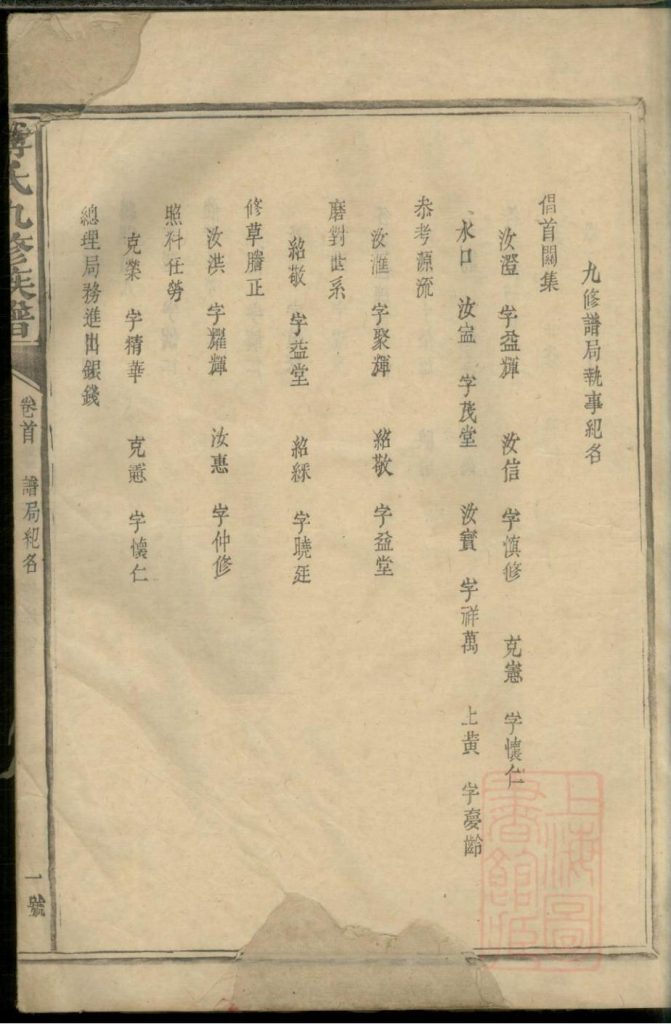 九修譜局執事紀名
倡首闗集
汝澄 字益輝 汝信 字慎修 克憲 字懷仁
水口 汝寍 字茂堂 汝實 字祥萬 上黄 字夢齡
恭考源流
汝滙 字聚輝 紹敬 字益堂
磨對世系
紹敬 字益堂 紹綵 字曉廷
修草謄正
汝洪 字耀輝 汝惠 字仲修
照料任勞
克榮 字精華 克憲 字懷仁
總理局務進出銀錢
氏九修族譜
卷首 譜局紀名 一號
上海圖書館藏